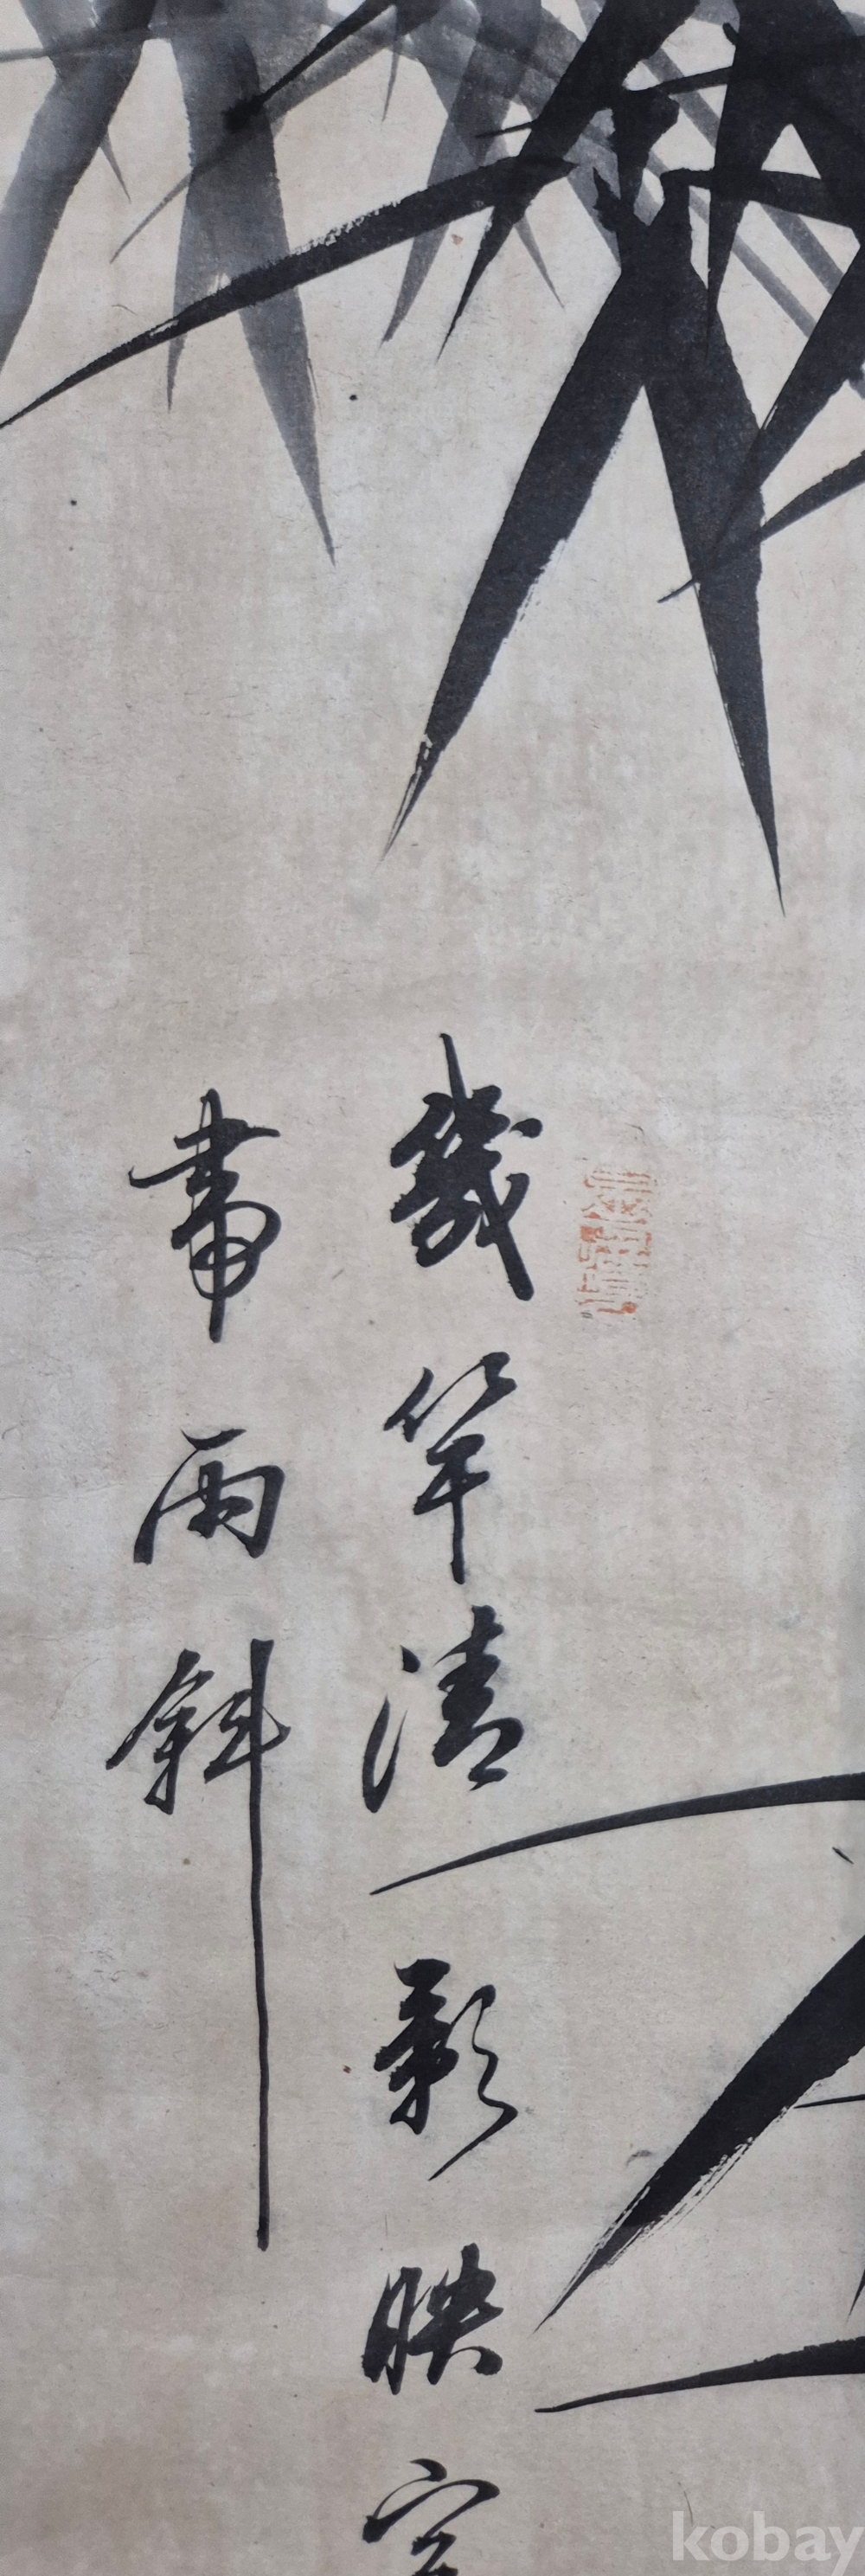 幾竿清影映
帶雨斜
kobay